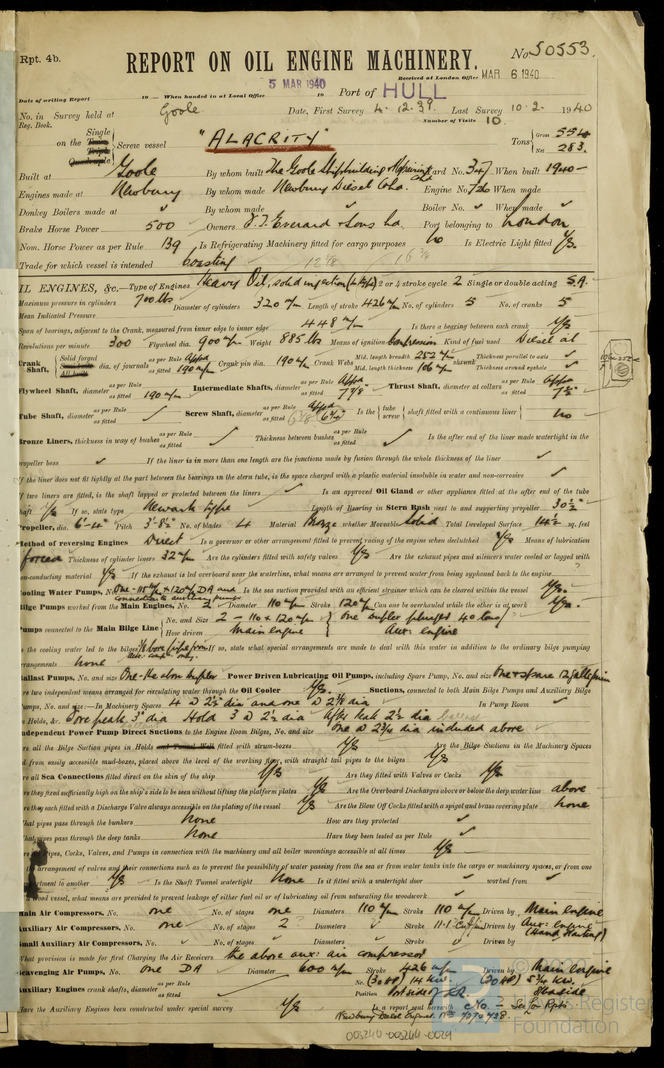 Rpt. 4b.
REPORT ON OIL ENGINE MACHINERY.
No 50553.
5 MAR 1940
Received at London Office MAR 6 1940
Date of writing Report 19 When handed in at Local Office 19 Port of HULL
No. in Survey held at Goole Date, First Survey 4.12.39 Last Survey 10.2. 1940
Reg. Book. Number of Visits 10
Single
on the Twin Screw vessel "ALACRITY" Tons Gross 554
Triple
Quadruple Net 283.
Built at Goole By whom built The Goole Shipbuilding & Repairing Yard No. 347 When built 1940
Engines made at Newbury By whom made Newbury Diesel Co Ltd. Engine No. 726 When made
Donkey Boilers made at By whom made Boiler No. When made
Brake Horse Power 500 Owners F. T. Everard & Sons Ld. Port belonging to London
Nom. Horse Power as per Rule 139 Is Refrigerating Machinery fitted for cargo purposes No Is Electric Light fitted Yes.
Trade for which vessel is intended Coasting
OIL ENGINES, &c.—Type of Engines Heavy Oil, solid injection 2 or 4 stroke cycle 2 Single or double acting S.A.
Maximum pressure in cylinders 700 lbs Diameter of cylinders 320 m/m Length of stroke 426 m/m No. of cylinders 5 No. of cranks 5
Mean Indicated Pressure
Span of bearings, adjacent to the Crank, measured from inner edge to inner edge 448 m/m Is there a bearing between each crank Yes
Revolutions per minute 300 Flywheel dia. 900 m/m Weight 885 lbs Means of ignition Compression Kind of fuel used Diesel oil
Crank Shaft, Solid forged dia. of journals as per Rule Appd as fitted 190 m/m Crank pin dia. 190 m/m Crank Webs Mid. length breadth 252 m/m Mid. length thickness 106 m/m shrunk Thickness parallel to axis Thickness around eyehole
Flywheel Shaft, diameter as per Rule as fitted 190 m/m Intermediate Shafts, diameter as per Rule Appd as fitted 7 7/8 Thrust Shaft, diameter at collars as per Rule Appd as fitted 7 1/2
Tube Shaft, diameter as per Rule as fitted Screw Shaft, diameter as per Rule Appd as fitted Is the tube screw shaft fitted with a continuous liner No
Bronze Liners, thickness in way of bushes as per Rule as fitted Thickness between bushes as per Rule as fitted Is the after end of the liner made watertight in the
propeller boss If the liner is in more than one length are the junctions made by fusion through the whole thickness of the liner
If the liner does not fit tightly at the part between the bearings in the stern tube, is the space charged with a plastic material insoluble in water and non-corrosive
If two liners are fitted, is the shaft lapped or protected between the liners Is an approved Oil Gland or other appliance fitted at the after end of the tube
shaft Yes If so, state type Newark type Length of Bearing in Stern Bush next to and supporting propeller 30 1/2"
Propeller, dia. 6'-4" Pitch 3'-8 1/2" No. of blades 4 Material Bronze whether Moveable Solid Total Developed Surface 14 1/2 sq. feet
Method of reversing Engines Direct Is a governor or other arrangement fitted to prevent racing of the engine when declutched Yes Means of lubrication
Forced Thickness of cylinder liners 32 m/m Are the cylinders fitted with safety valves Yes Are the exhaust pipes and silencers water cooled or lagged with
non-conducting material Yes If the exhaust is led overboard near the waterline, what means are arranged to prevent water from being syphoned back to the engine
Cooling Water Pumps, No. One - 115 m/m x 120 m/m D.A. and connection to auxiliary pump Is the sea suction provided with an efficient strainer which can be cleared within the vessel Yes.
Bilge Pumps worked from the Main Engines, No. 2 Diameter 110 m/m Stroke 120 m/m Can one be overhauled while the other is at work Yes.
Pumps connected to the Main Bilge Line No. and Size 2 - 110 x 120 m/m One duplex plunger 40 tons/
How driven Main engine Aux. engine
Is the cooling water led to the bilges If so, state what special arrangements are made to deal with this water in addition to the ordinary bilge pumping
arrangements None
Ballast Pumps, No. and size One - the above duplex Power Driven Lubricating Oil Pumps, including Spare Pump, No. and size One & spare
Are two independent means arranged for circulating water through the Oil Cooler Yes. Suctions, connected to both Main Bilge Pumps and Auxiliary Bilge
Pumps, No. and size:—In Machinery Spaces 4 @ 2 1/2" dia and one @ 2 3/8 dia In Pump Room
In Holds, &c. Fore peak 3" dia Hold 3 @ 2 1/2 dia After peak 2 1/2 dia
Independent Power Pump Direct Suctions to the Engine Room Bilges, No. and size One @ dia included above
Are all the Bilge Suction pipes in Holds and Tunnel Well fitted with strum-boxes Yes Are the Bilge Suctions in the Machinery Spaces
led from easily accessible mud-boxes, placed above the level of the working floor, with straight tail pipes to the bilges Yes
Are all Sea Connections fitted direct on the skin of the ship Yes Are they fitted with Valves or Cocks Yes
Are they fixed sufficiently high on the ship's side to be seen without lifting the platform plates Yes Are the Overboard Discharges above or below the deep water line above
Are they each fitted with a Discharge Valve always accessible on the plating of the vessel Yes Are the Blow Off Cocks fitted with a spigot and brass covering plate None
What pipes pass through the bunkers None How are they protected
What pipes pass through the deep tanks None Have they been tested as per Rule
Are all Pipes, Cocks, Valves, and Pumps in connection with the machinery and all boiler mountings accessible at all times Yes
Is the arrangement of valves and their connections such as to prevent the possibility of water passing from the sea or from water tanks into the cargo or machinery spaces, or from one
compartment to another Yes Is the Shaft Tunnel watertight None Is it fitted with a watertight door worked from
If a wood vessel, what means are provided to prevent leakage of either fuel oil or lubricating oil from saturating the woodwork
Main Air Compressors, No. One No. of stages One Diameters 110 m/m Stroke 110 m/m Driven by Main Engine
Auxiliary Air Compressors, No. One No. of stages 2 Diameters Stroke Driven by Aux: Engine (Hand starting)
Small Auxiliary Air Compressors, No. No. of stages Diameters Stroke Driven by
What provision is made for first Charging the Air Receivers the above aux: air compressor
Scavenging Air Pumps, No. One DA Diameter 600 m/m Stroke 426 m/m Driven by Main Engine
Auxiliary Engines crank shafts, diameter as per Rule as fitted No. Position Port side of E.R.
Have the Auxiliary Engines been constructed under special survey Yes Is a report sent herewith No
003240-003244-0029
© 2020
Lloyd's Register
Foundation